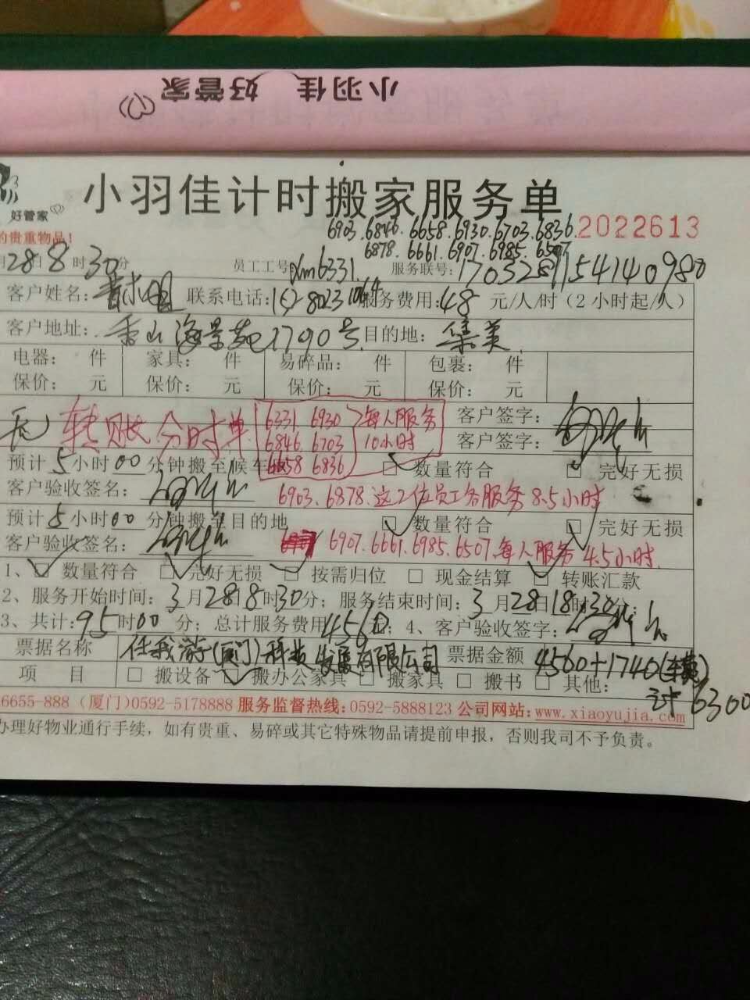 小羽佳 好管家
好管家
小羽佳计时搬家服务单
的贵重物品!
6903.6846.6658.6930.6703.6836.
6878.6661.6907.6985.6507
2022613
28日8时30分 员工工号: xm6331 服务联号: 170328115414098
客户姓名: 联系电话: 服务费用:48元/人/时(2小时起/人)
客户地址: 香山海景苑1790号 目的地: 集美
电器: 件 家具: 件 易碎品: 件 包裹: 件
保价: 元 保价: 元 保价: 元 保价: 元
转账 分时单
6331 6930 每人服务
6846 6703 10小时
6658 6836
客户签字:
客户签字:
预计5小时00分钟搬至候车 □ 数量符合 □ 完好无损
客户验收签名: 6903.6878.这2位员工各服务8.5小时
预计5小时00分钟搬至目的地 □ 数量符合 □ 完好无损
客户验收签名: 6907.6661.6985.6507.每人服务4.5小时.
1、□ 数量符合 □ 完好无损 □ 按需归位 □ 现金结算 □ 转账汇款
2、服务开始时间: 3月28日8时30分; 服务结束时间: 3月28日18时30分;
3、共计:95时00分; 总计服务费用4560; 4、客户验收签字:
票据名称 任我游(厦门)科技发展有限公司 票据金额 4560+1740(车费)
计6300
项 目 □ 搬设备 □ 搬办公家具 □ 搬家具 □ 搬书 □ 其他:
6655-888 (厦门)0592-5178888 服务监督热线:0592-5888123 公司网站:www.xiaoyujia.com
办理好物业通行手续,如有贵重、易碎或其它特殊物品请提前申报,否则我司不予负责。